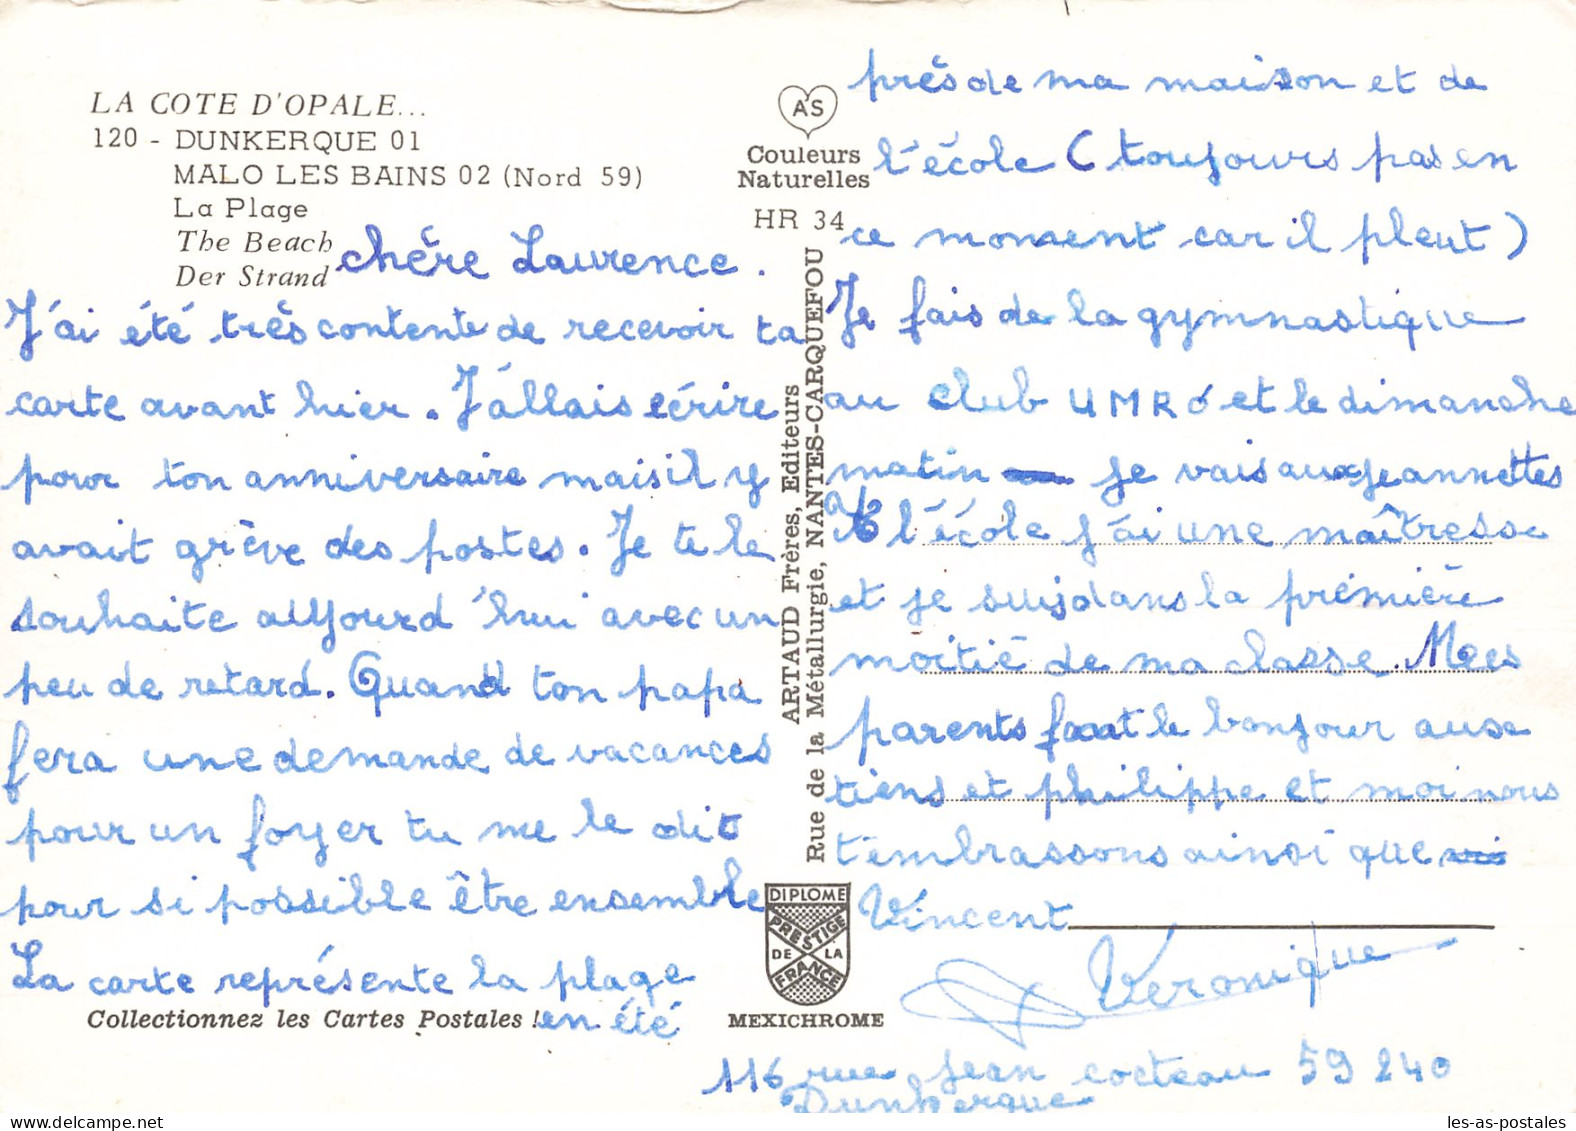 LA COTE D'OPALE...
120 - DUNKERQUE 01
MALO LES BAINS 02 (Nord 59)
La Plage
The Beach
Der Strand
chère Laurence.
J'ai été très contente de recevoir ta
carte avant hier. J'allais écrire
pour ton anniversaire mais il y
avait grève des postes. Je te le
souhaite aujourd'hui avec un
peu de retard. Quand ton papa
fera une demande de vacances
pour un foyer tu me le dit
pour si possible être ensemble
La carte représente la plage
en été
Collectionnez les Cartes Postales !
AS
Couleurs
Naturelles
HR 34
ARTAUD Frères, Editeurs
Rue de la Métallurgie, NANTES-CARQUEFOU
DIPLOME
PRESTIGE
DE LA
FRANCE
MEXICHROME
près de ma maison et de
l'école (toujours pas en
ce moment car il pleut)
Je fais de la gymnastique
au club UMRO et le dimanche
matin je vais aux jeannettes
A l'école j'ai une maîtresse
et je suis dans la prémière
moitié de ma classe. Mes
parents te le bonjour ause
tiens et philippe et moi nous
t'embrassons ainsi que
Vincent
Veronique
116 rue jean cocteau 59 240
Dunkerque
les-as-postales